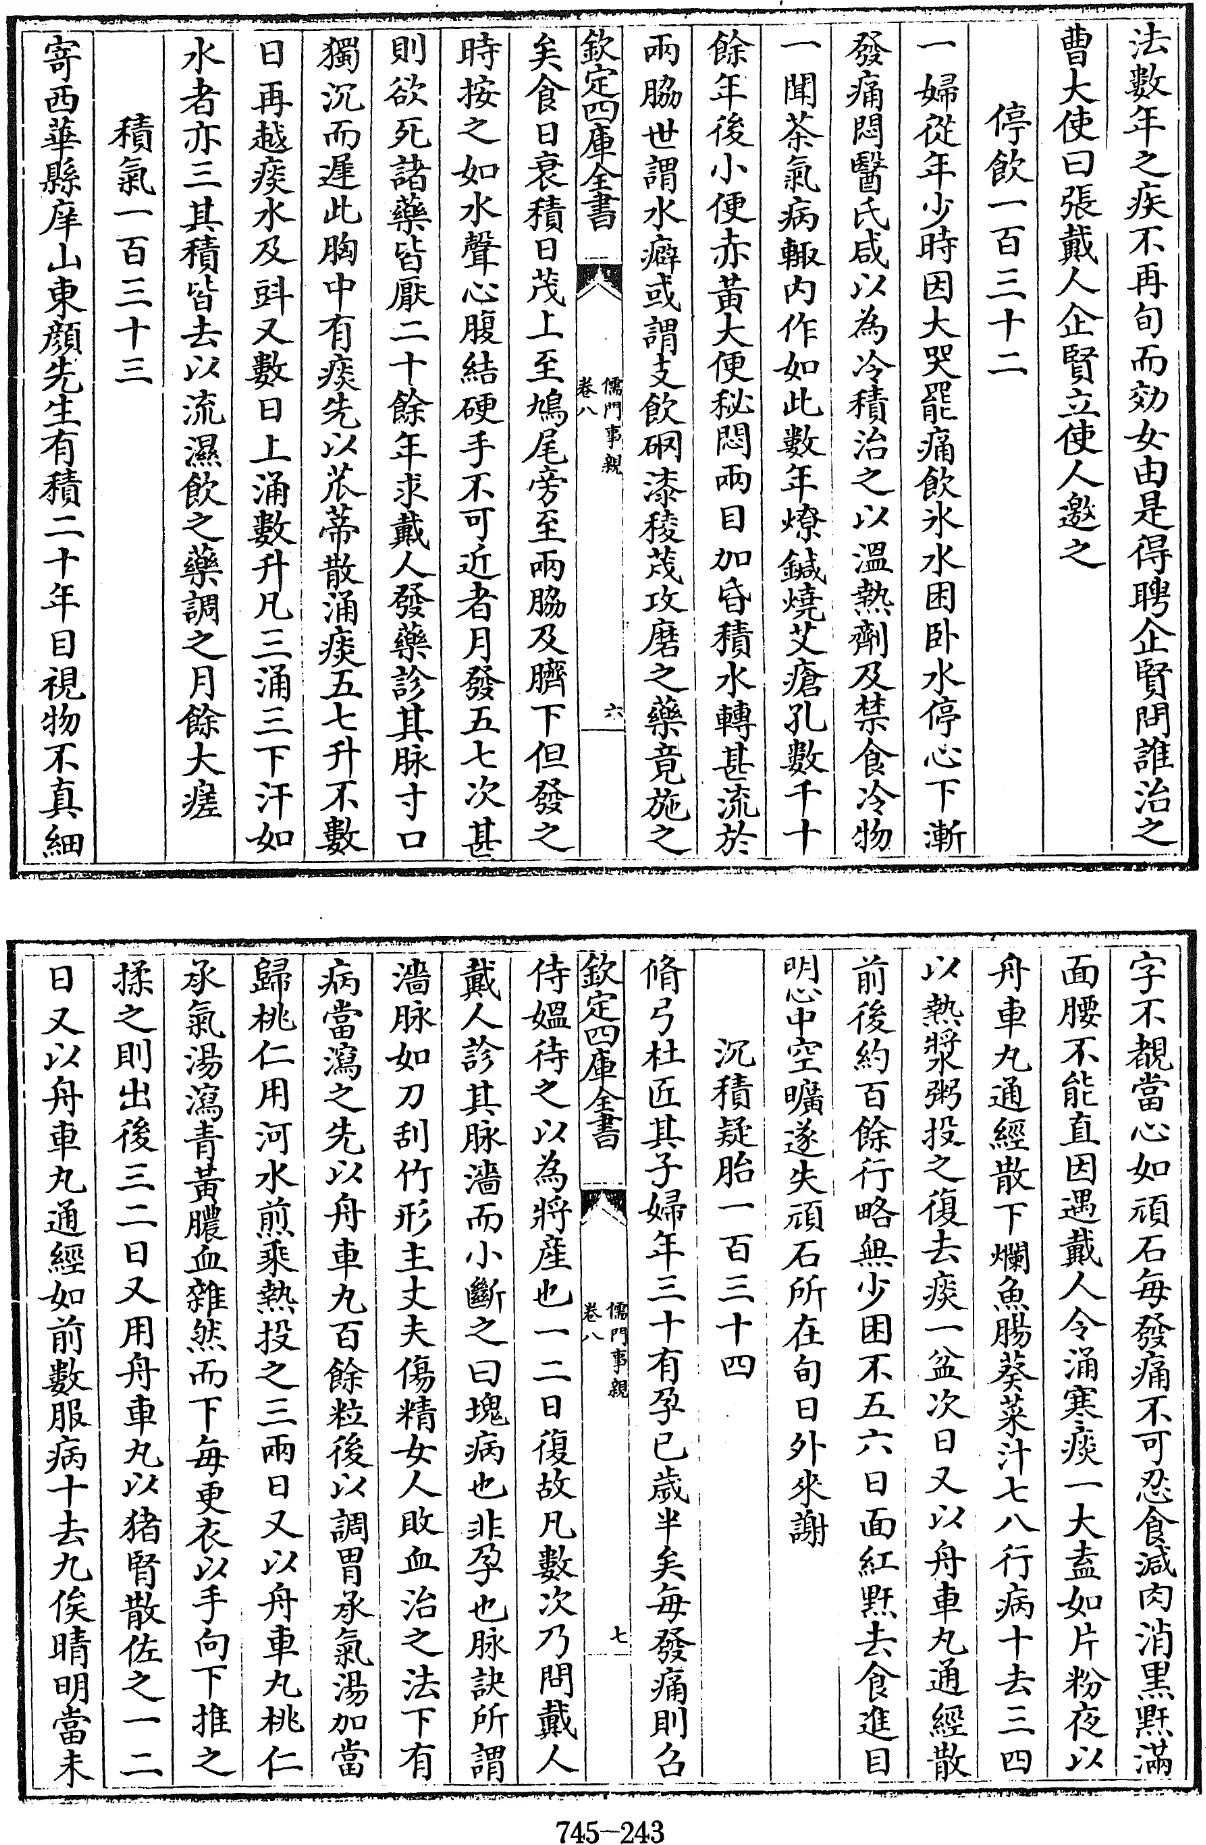 法數年之疾不再旬而効女由是得聘企賢問誰治之
曹大使曰張戴人企賢立使人邀之
停飲一百三十二
一婦從年少時因大哭罷痛飲氷水困卧水停心下漸
發痛悶醫氏咸以為冷積治之以溫熱劑及禁食冷物
一聞茶氣病輙内作如此數年燎鍼燒艾瘡孔數千十
餘年後小便赤黃大便秘悶兩目加昏積水轉甚流於
兩脇世謂水癖或謂支飲硇漆稜茂攻磨之藥竟施之
欽定四庫全書
儒門事親
卷八
六
矣食日衰積日茂上至鳩尾旁至兩脇及臍下但發之
時按之如水聲心腹結硬手不可近者月發五七次甚
則欲死諸藥皆厭二十餘年求戴人發藥診其脉寸口
獨沉而遲此胸中有痰先以苽蔕散涌痰五七升不數
日再越痰水及㪷又數日上涌數升凡三涌三下汗如
水者亦三其積皆去以流濕飲之藥調之月餘大瘥
積氣一百三十三
寄西華縣庠山東顔先生有積二十年目視物不真細
字不覩當心如頑石每發痛不可忍食減肉消黒䵟滿
面腰不能直因遇戴人令涌寒痰一大盍如片粉夜以
舟車丸通經散下爛魚腸葵菜汁七八行病十去三四
以熱漿粥投之復去痰一盆次日又以舟車丸通經散
前後約百餘行略無少困不五六日面紅䵟去食進目
明心中空曠遂失頑石所在旬日外來謝
沉積疑胎一百三十四
脩弓杜匠其子婦年三十有孕已歳半矣每發痛則召
欽定四庫全書
儒門事親
卷八
七
侍媼待之以為將産也一二日復故凡數次乃問戴人
戴人診其脉濇而小斷之曰塊病也非孕也脉訣所謂
濇脉如刀刮竹形主丈夫傷精女人敗血治之法下有
病當瀉之先以舟車丸百餘粒後以調胃承氣湯加當
歸桃仁用河水煎乘熱投之三兩日又以舟車丸桃仁
承氣湯瀉青黃膿血雜然而下每更衣以手向下推之
揉之則出後三二日又用舟車丸以猪腎散佐之一二
日又以舟車丸通經如前數服病十去九俟晴明當未
745-243